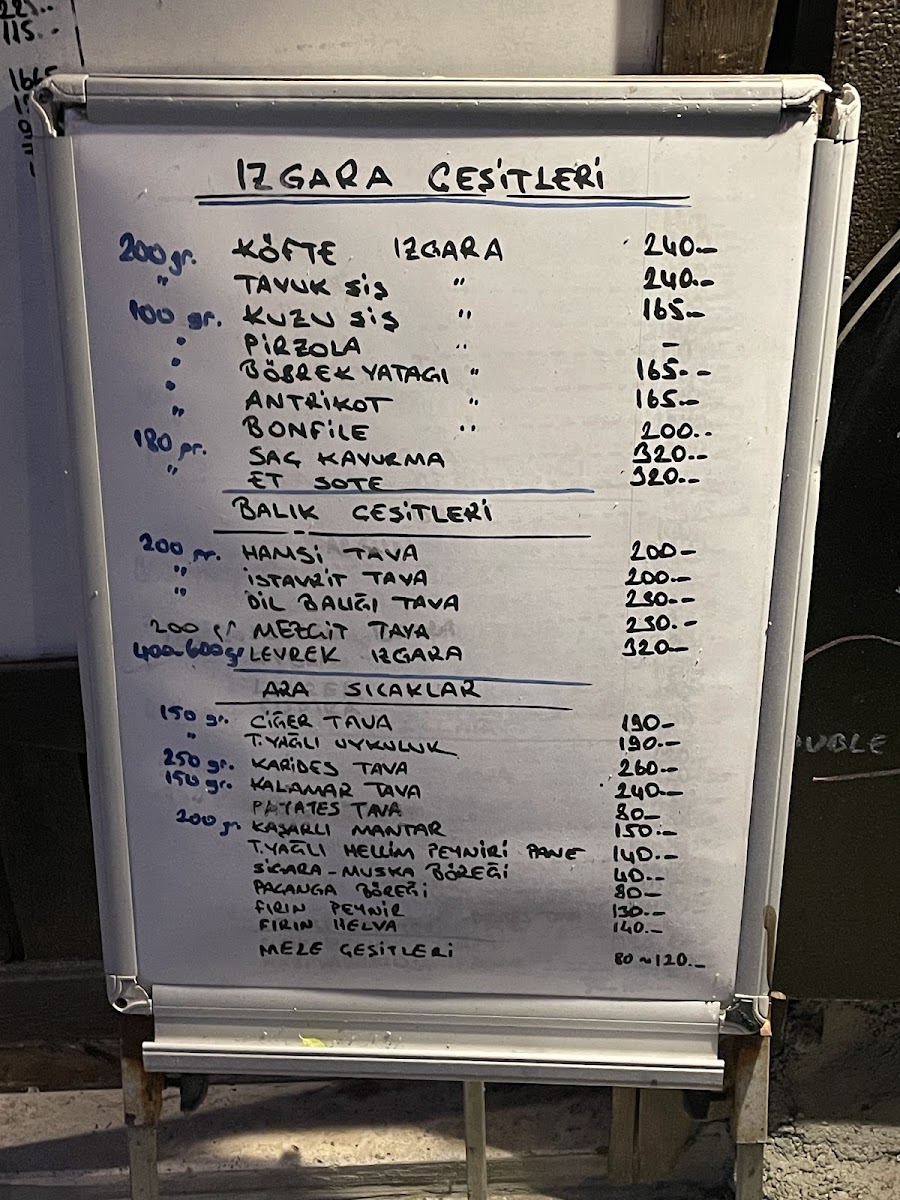 225..
115..
1665
IZGARA ÇEŞİTLERİ
200 gr. KÖFTE IZGARA 240.-
" TAVUK ŞİŞ " 240.-
100 gr. KUZU ŞİŞ " 165.-
" PİRZOLA " -
" BÖBREK YATAGI " 165.-
" ANTRİKOT " 165.-
" BONFİLE " 200..
180 gr. SAÇ KAVURMA 320.-
" ET SOTE 320.-
BALIK ÇEŞİTLERİ
200 gr. HAMSİ TAVA 200-
" İSTAVRİT TAVA 200.-
" DİL BALIĞI TAVA 230.-
200 gr MEZGİT TAVA 230.-
400-600gr LEVREK IZGARA 320.-
ARA SICAKLAR
150 gr. CİĞER TAVA 190-
" T.YAĞLI UYKULUK 190.-
250 gr. KARİDES TAVA 260-
150 gr. KALAMAR TAVA 240.-
PATATES TAVA 80-
200 gr. KAŞARLI MANTAR 150.-
T.YAĞLI HELLİM PEYNİRİ PANE 140.-
SİGARA-MUSKA BÖREĞİ 40.-
PAÇANGA BÖREĞİ 80-
FIRIN PEYNİR 130.-
FIRIN HELVA 140.-
MEZE ÇEŞİTLERİ 80~120.-
OUBLE